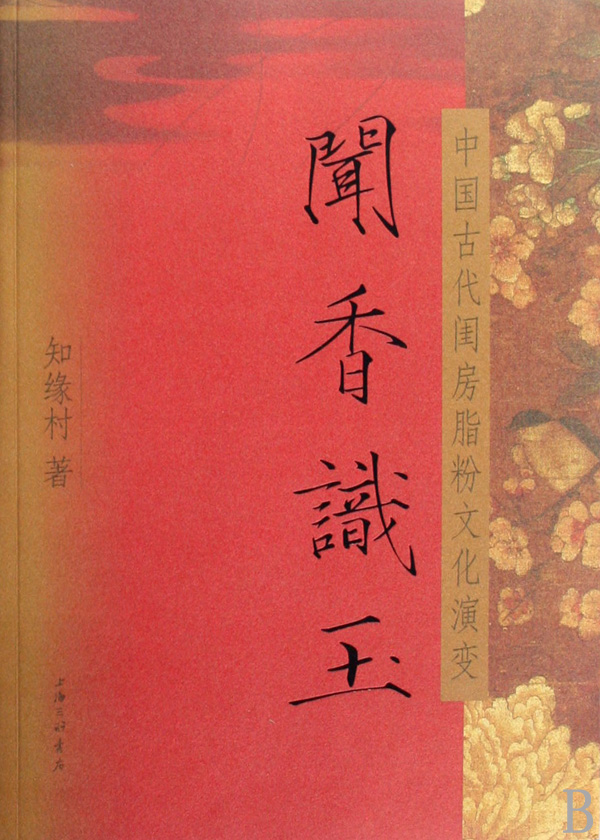 中国古代闺房脂粉文化演变
聞香識玉
知缘村 著
上海三联书店
B